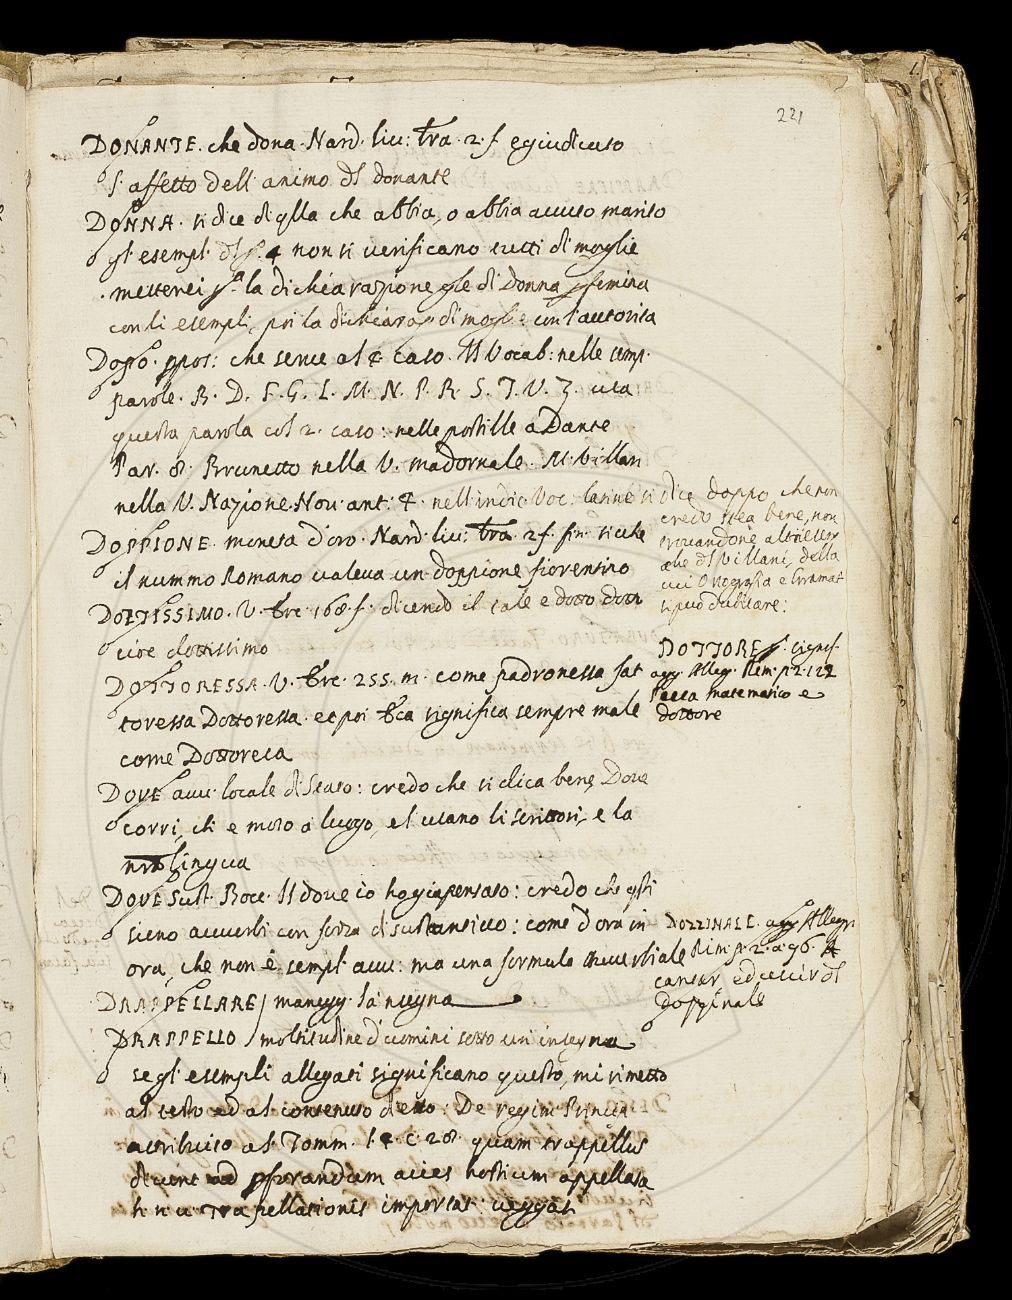 221
DONANTE. che dona. Nard. liu: tra. 2. f. egiudicato
l'affetto dell'animo dl donante
DONNA. si dice di qlla che abbia, o abbia auuto marito
gl'esempl. non si uerificano tutti di moglie
metterei pa. la dichiarazione gle di Donna p femina
con li esempli, poi la dichiaraze. di moglie con l'autorita
Dopo. ppos: che serue al 4 caso. Il Vocab: nelle semp.
parole. B. D. F. G. L. M. N. P. R. S. T. V. Z. usa
questa parola col 2. caso: nelle postille a Dante
Par. 8. Brunetto nella V. madornale. M. Villan
nella V. Nazione. Nou. ant: 4. nell'indic. Voc: latine si dice doppo, che non
credo stea bene, non
trouandone altri esem
dl Villani, della
cui Ortografia e Gramat
si può dubitare:
DOPPIONE. moneta d'oro. Nard. liu: tra. 2. f.
il nummo Romano ualeua un doppione fiorentino
DOTTISSIMO. V. Tre. 168. f: dicendo il tale e dotto dotto
cioe dottissimo
DOTTORESSA. V. Tre. 255. m. come padronessa fat
toressa Dottoressa. e poi significa sempre male
come Dottoreca
DOTTORE signif.
agg. Alleg. Rim. p. 2. 122
matematico e
dottore
DOVE auu. locale di Stato: credo che si dica bene, Doue
corri, ch'e moto a luogo, e l'usano li scrittori, e la
nra lingua
DOVE Sust. Bocc. Il doue io ho gia pensato: credo che qsti
sieno auuerbi con forza di sustantiuo: come d'ora in
ora, che non è sempl. auu: ma una formula auuerbiale
DOZZINALE. agg. Allegri
Rim. p. 2. a 96.
cantar, ed uscir dl
dozzinale
DRAPPELLARE / manegg. la'nsegna
DRAPPELLO / moltitudine d'uomini sotto un'insegna
se gl'esempli allegati significano questo, mi rimetto
al testo ed al contenuto d'esso: De regim: Princip.
attribuito a S. Tomm. l. 4. c. 28. quam trappellus
dicunt ad pforandum acies hostium appellata
trapellationis importat: uegga si